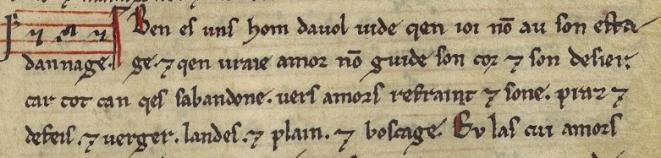 Ben es uns hom davol uide qen ioi nō au son esta
dannage. ge ⁊ qen uraie amor nō guide son cor ⁊ son desier.
car tot can qes sabandone. uers amors refraint ⁊ sone. praz ⁊
defeis. ⁊ uerger. landes. ⁊ plain. ⁊ boscage. Eu las cui amors